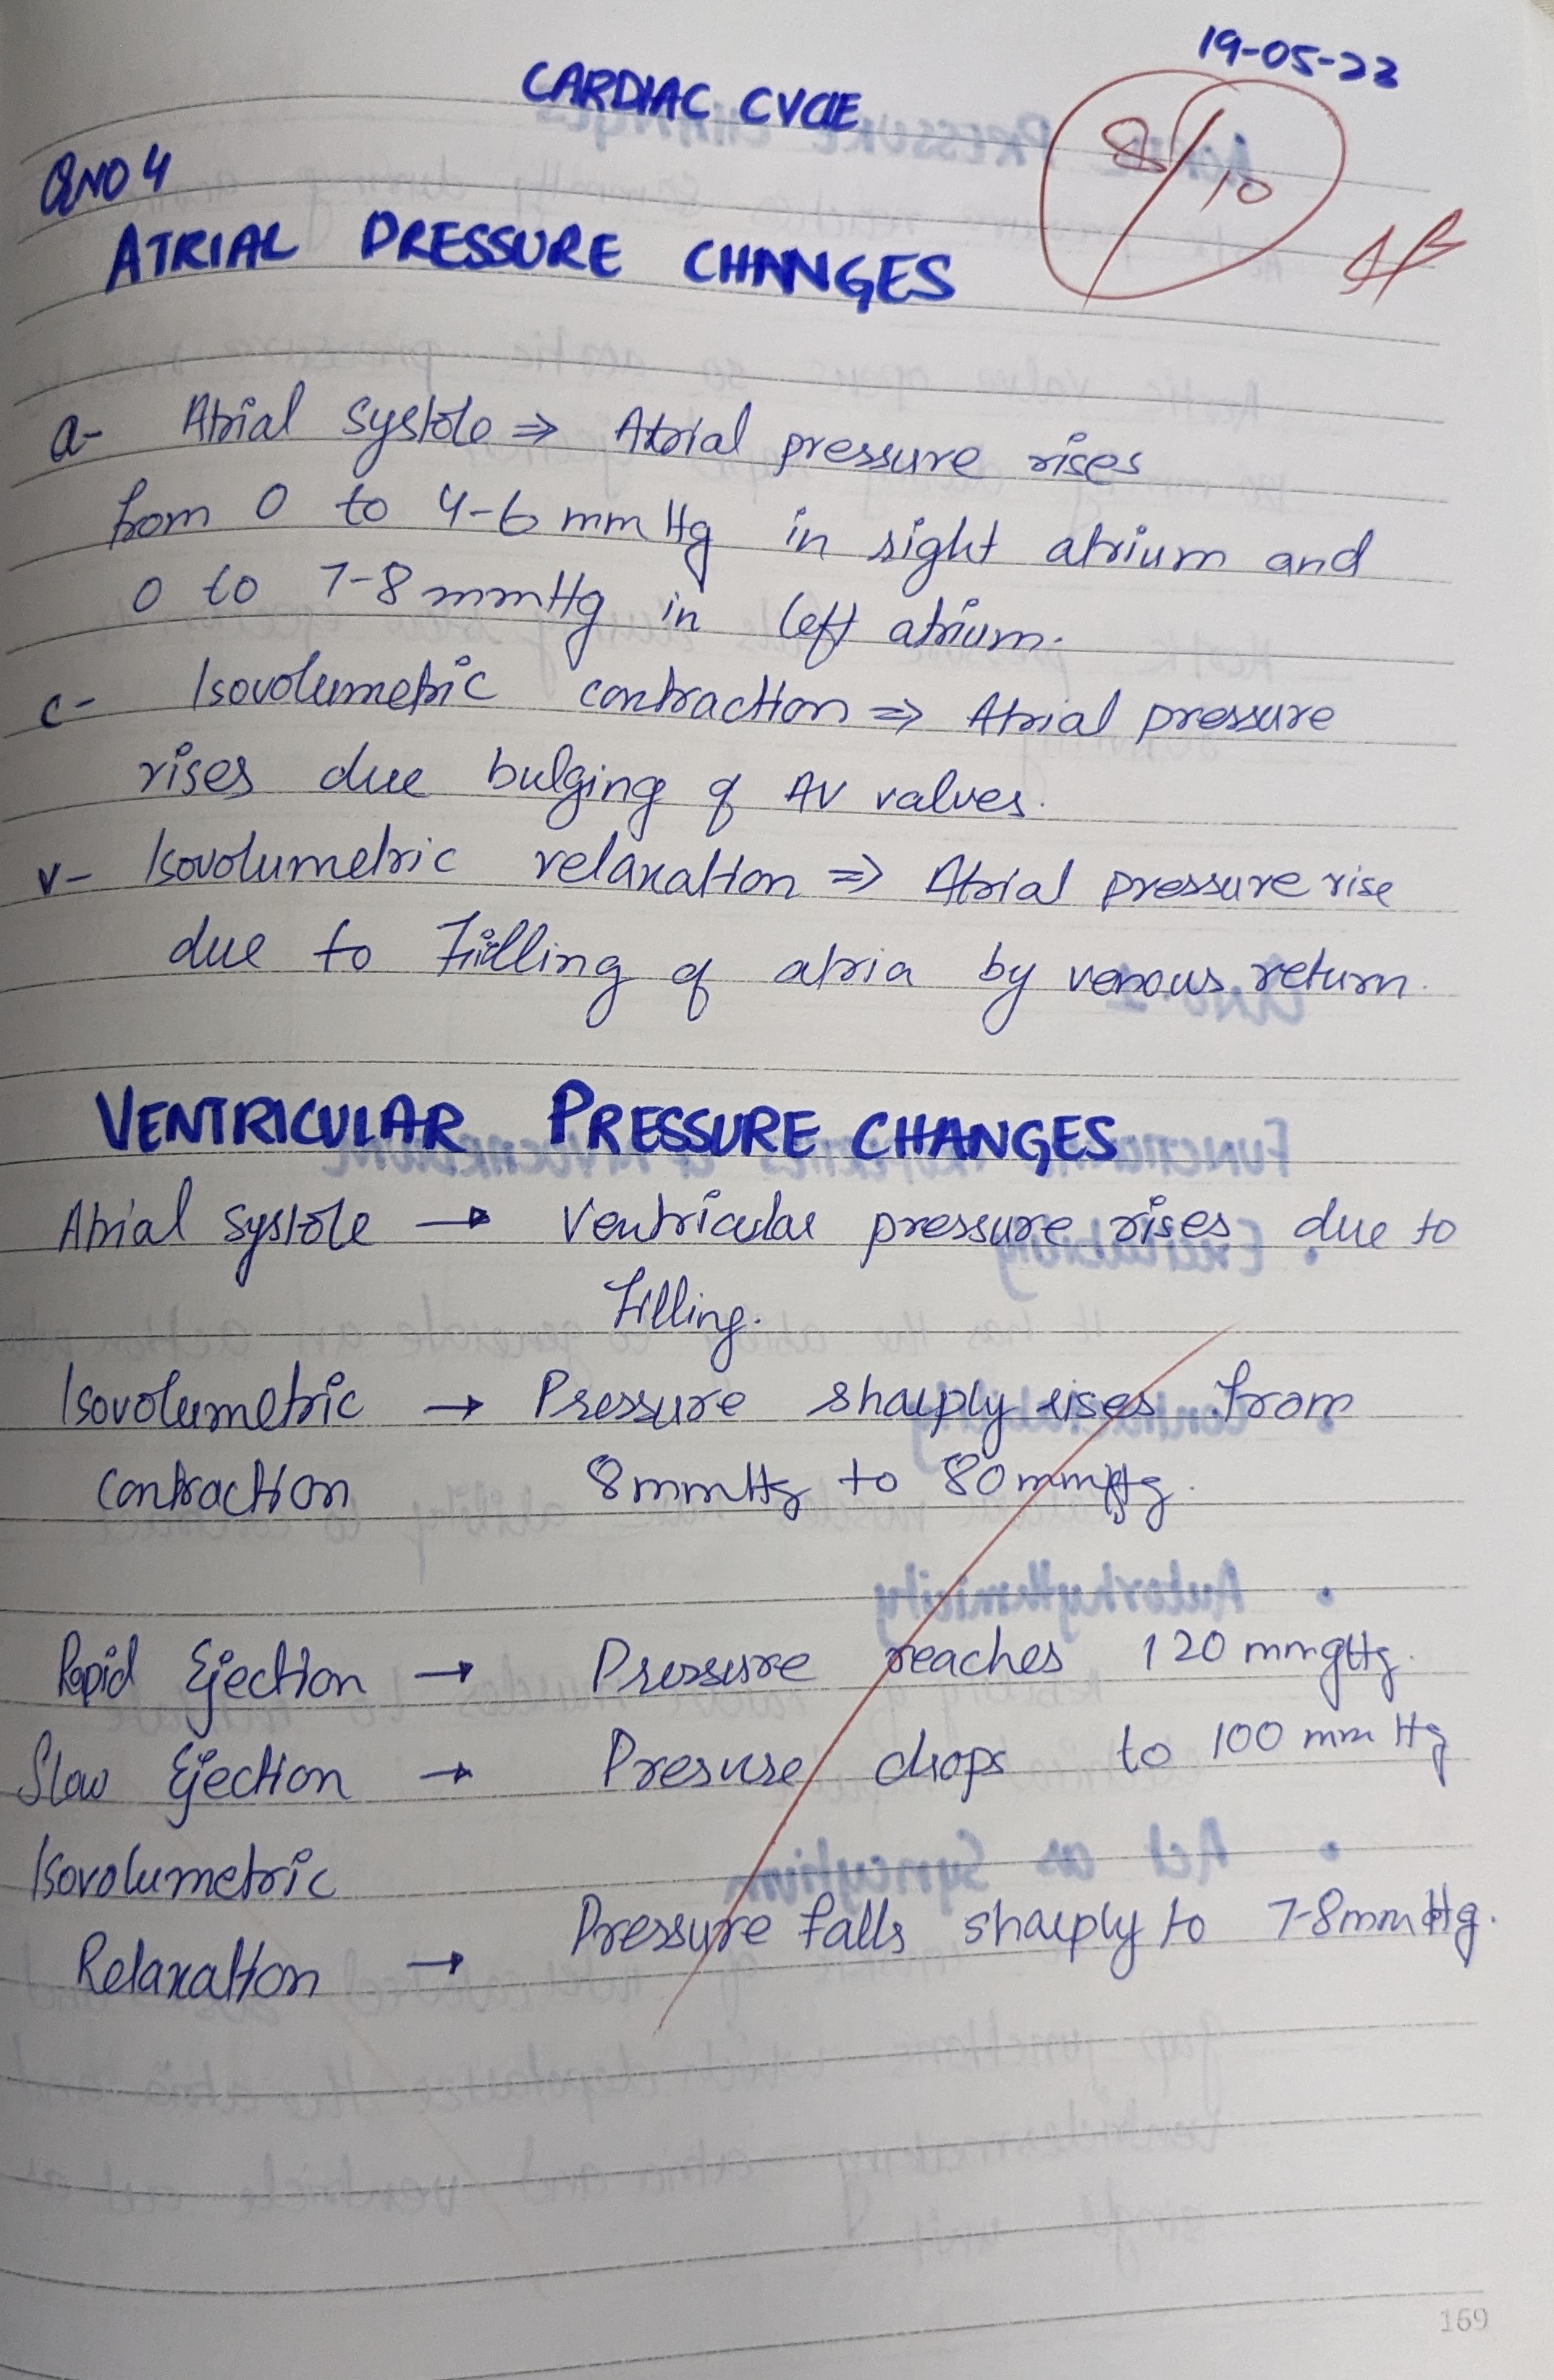 19-05-23
CARDIAC CYCLE
8/10
QNO 4
ATRIAL PRESSURE CHANGES
a- Atrial systole ⇒ Atrial pressure rises
from 0 to 4-6 mmHg in right atrium and
0 to 7-8 mmHg in left atrium.
c- Isovolumetric contraction ⇒ Atrial pressure
rises due bulging of AV valves.
v- Isovolumetric relaxation ⇒ Atrial pressure rise
due to Filling of atria by venous return.
VENTRICULAR PRESSURE CHANGES
Atrial systole → Ventricular pressure rises due to
Filling.
Isovolumetric → Pressure sharply rises from
contraction 8mmHg to 80mmHg.
Rapid Ejection → Pressure reaches 120 mmgHg.
Slow Ejection → Presure drops to 100 mm Hg
Isovolumetric
Relaxation → Pressure falls sharply to 7-8mmHg.
169